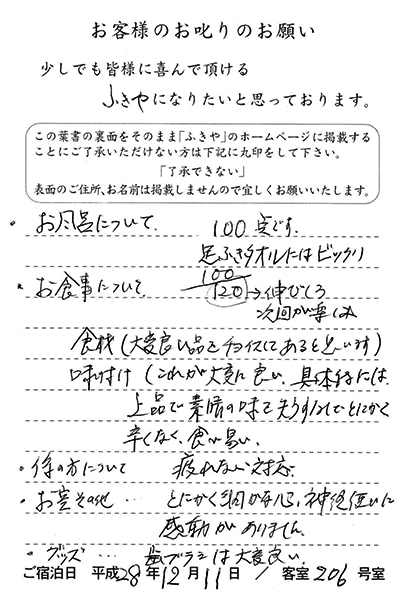 お客様のお叱りのお願い
少しでも皆様に喜んで頂ける
ふきやになりたいと思っております。
この葉書の裏面をそのまま「ふきや」のホームページに掲載する
ことにご了承いただけない方は下記に丸印をして下さい。
「了承できない」
表面のご住所、お名前は掲載しませんので宜しくお願いいたします。
・お風呂について. 100点です.
足ふきタオルにはビックリ
・お食事について. 100 120→伸びしろ
次回が楽しみ
食材(大変良い品をチョイスしてあると思います)
味付け(これが大変に良い. 具体的には.
上品で素晴の味を失わないでとにかく
辛くなく、食べ易い.
・係の方について 疲れない対応.
・お室その他… とにかく
感動がありません.
・グッズ… 歯ブラシは大変良い.
ご宿泊日 平成28年12月11日 / 客室206号室